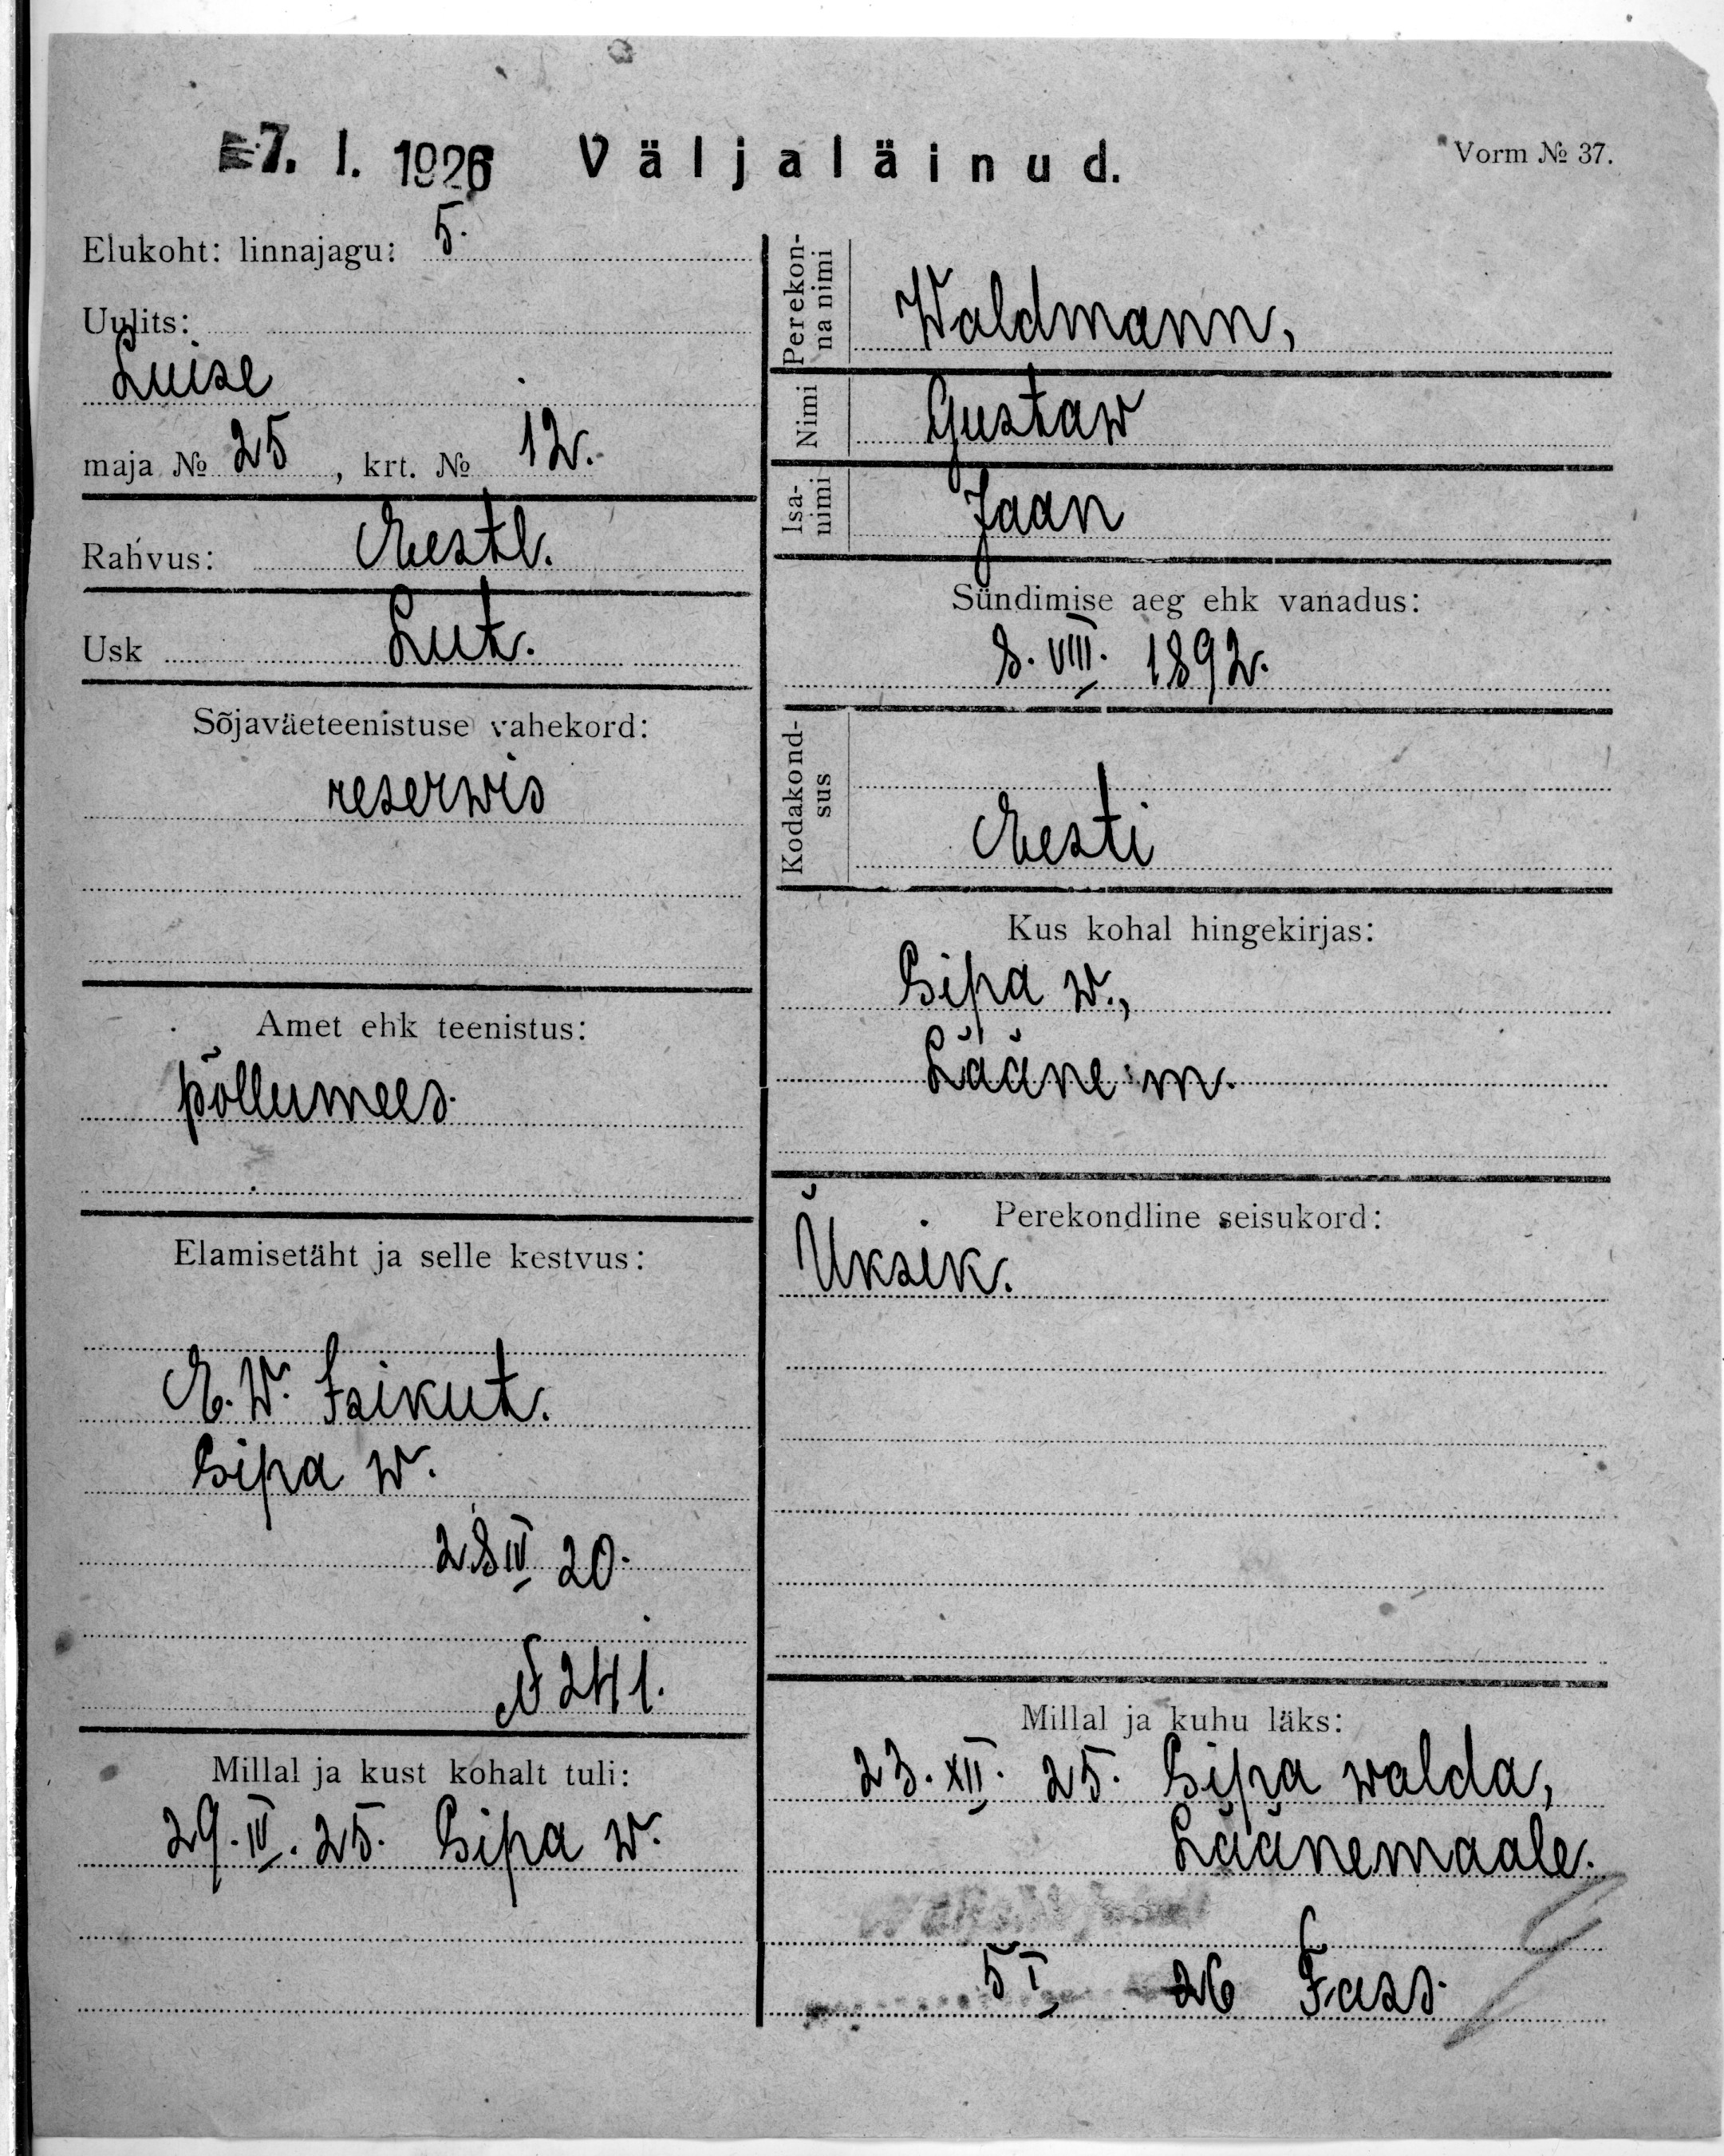 7. I. 1926 Väljaläinud. Vorm № 37.
Elukoht: linnajagu: 5.
Uulits:
Luise
maja № 25, krt. № 12.
Rahvus: Eestl.
Usk Lut.
Sõjaväeteenistuse vahekord:
reserwis
Amet ehk teenistus:
põllumees.
Elamisetäht ja selle kestvus:
E. W. Isikut.
Sipa w.
28 IV 20.
№ 241.
Millal ja kust kohalt tuli:
29. IV. 25. Sipa w.
Perekon-
na nimi
Waldmann,
Nimi Gustaw
Isa-
nimi
Jaan
Sündimise aeg ehk vanadus:
8. VIII. 1892.
Kodakond-
sus
Eesti
Kus kohal hingekirjas:
Sipa w.,
Lääne m.
Perekondline seisukord:
Üksik.
Millal ja kuhu läks:
23. XII. 25. Sipa walda,
Läänemaale.
5 I 26